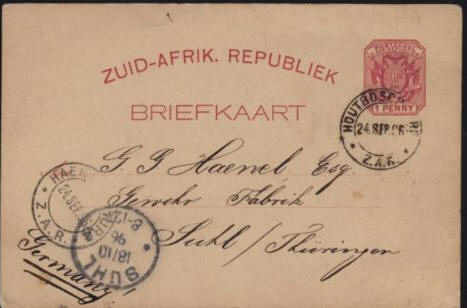 ZUID-AFRIK. REPUBLIEK
BRIEFKAART
1 PENNY
HOUTBOSCH
24.SEP.96
Z.A.R.
G. G. Haenel Esq.
Gewehr Fabrik
Suhl / Thüringen
Germany
HAEN
24 SEP
Z.A.R.
SUHL
18/10
96
8-12